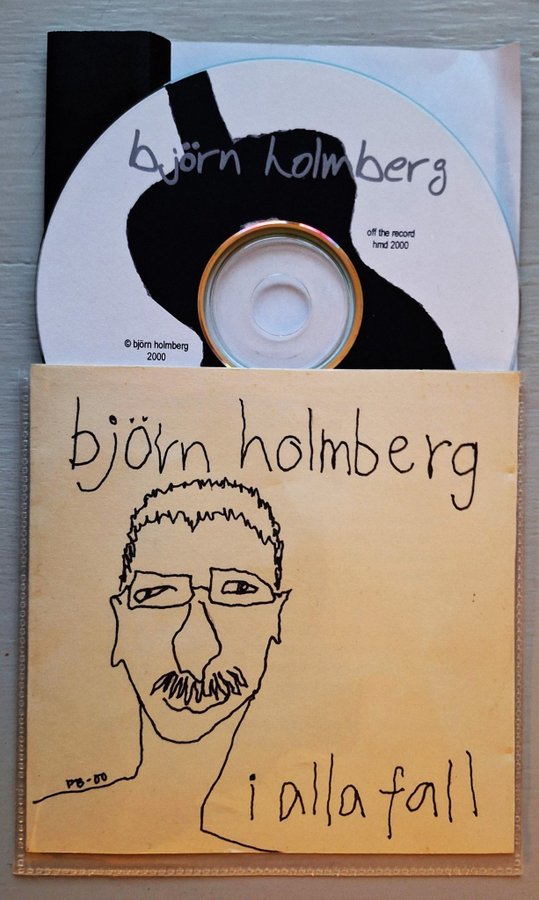 björn holmberg
off the record
hmd 2000
© björn holmberg
2000
björn holmberg
PB-00
i alla fall